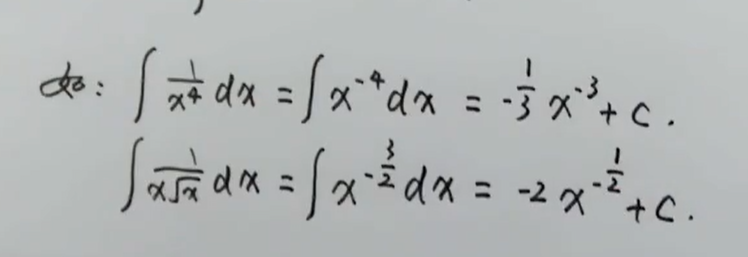 如: ∫ 1/x⁴ dx = ∫ x⁻⁴ dx = -1/3 x⁻³ + C.
∫ 1/(x√x) dx = ∫ x^(-3/2) dx = -2 x^(-1/2) + C.